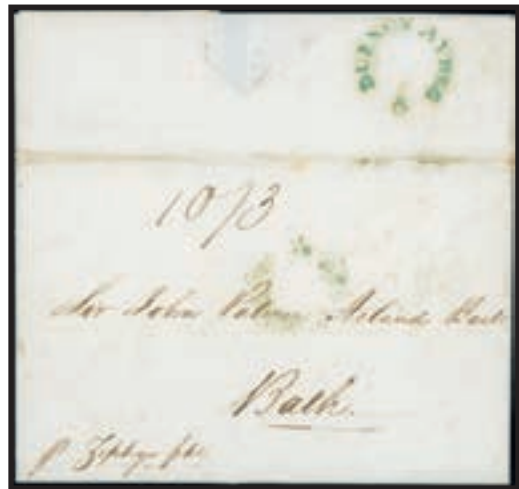 BUENOS AYRES
10/3
Sir John Palmer Acland Bart
Bath.
p Zephyr